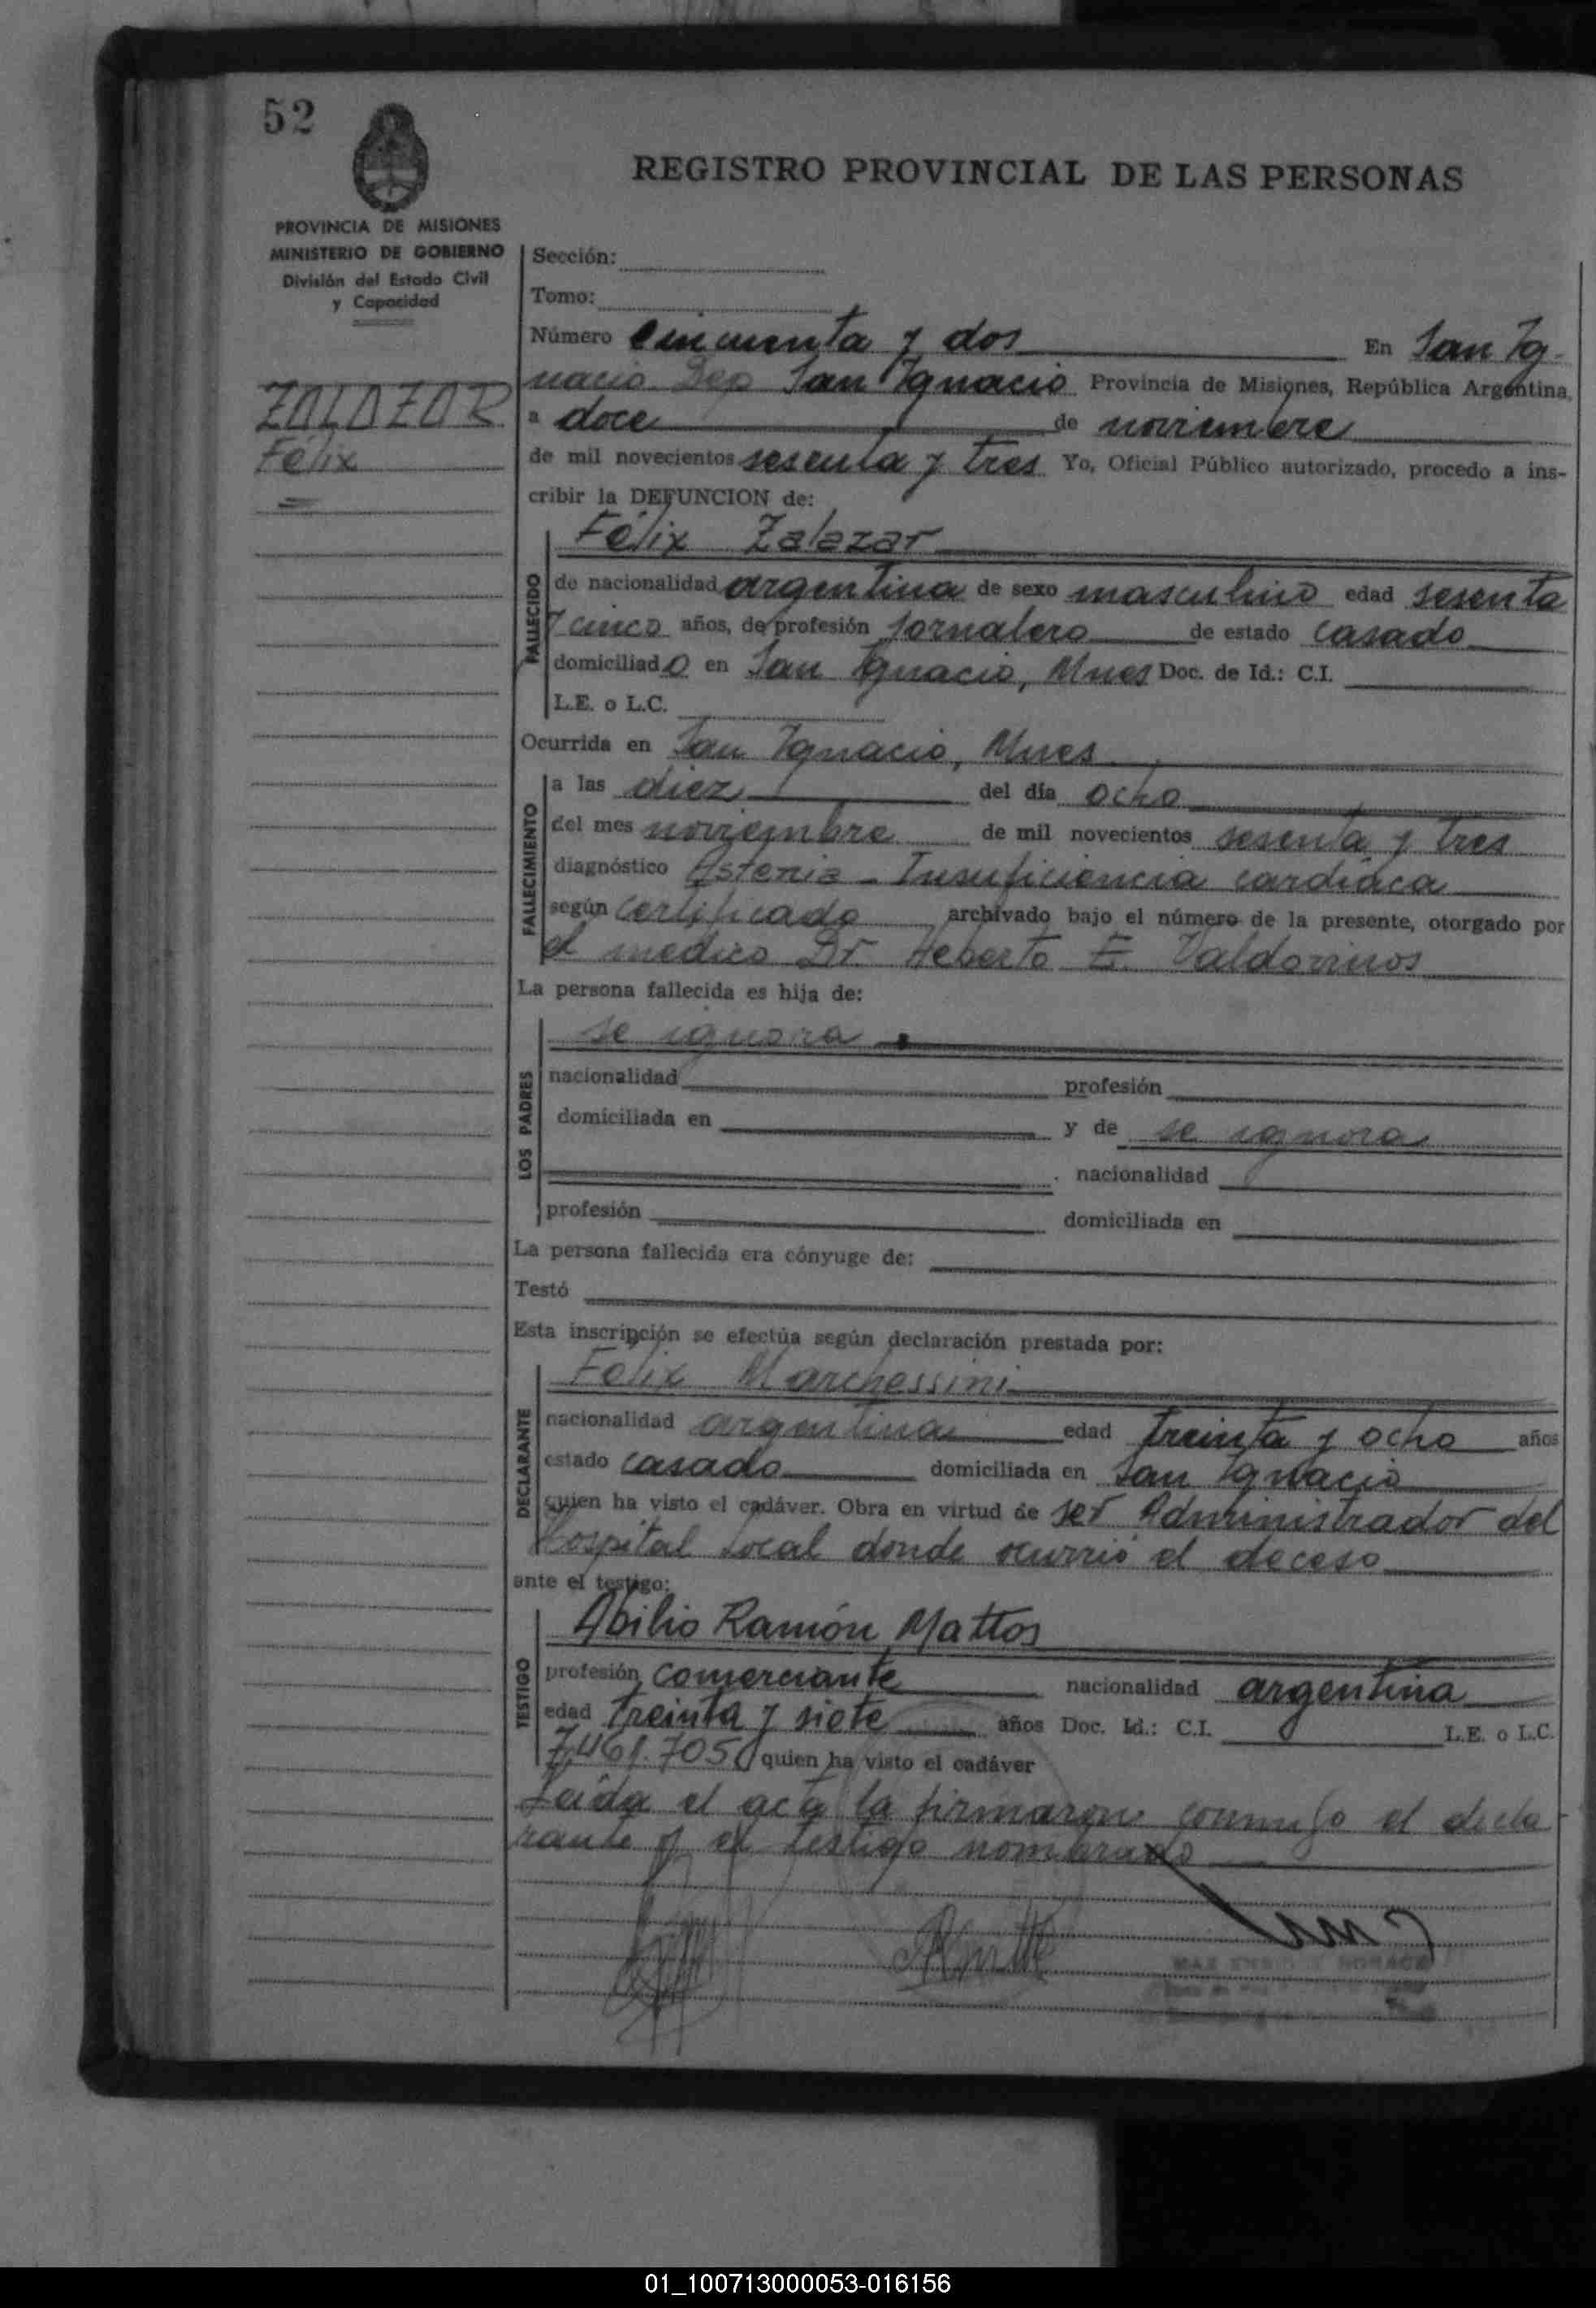 52
REGISTRO PROVINCIAL DE LAS PERSONAS
PROVINCIA DE MISIONES
MINISTERIO DE GOBIERNO
División del Estado Civil
y Capacidad
ZALAZAR
Félix
Sección:
Tomo:
Número cincuenta y dos En San Ig-
nacio Dep San Ignacio Provincia de Misiones, República Argentina,
a doce de noviembre
de mil novecientos sesenta y tres Yo, Oficial Público autorizado, procedo a ins-
cribir la DEFUNCION de:
FALLECIDO
Félix Zalazar
de nacionalidad argentina de sexo masculino edad sesenta
y cinco años, de profesión Jornalero de estado casado
domiciliado en San Ignacio, Mnes Doc. de Id.: C.I.
L.E. o L.C.
Ocurrida en San Ignacio, Mnes
FALLECIMIENTO
a las diez del día ocho
del mes noviembre de mil novecientos sesenta y tres
diagnóstico Astenia - Insuficiencia cardiaca
según Certificado archivado bajo el número de la presente, otorgado por
el medico Dr. Heberto E. Valdovinos
La persona fallecida es hija de:
LOS PADRES
se ignora
nacionalidad profesión
domiciliada en y de se ignora
nacionalidad
profesión domiciliada en
La persona fallecida era cónyuge de:
Testó
Esta inscripción se efectúa según declaración prestada por:
DECLARANTE
Félix Marchessini
nacionalidad argentina edad treinta y ocho años
estado casado domiciliada en San Ignacio
quien ha visto el cadáver. Obra en virtud de ser Administrador del
Hospital Local donde ocurrió el deceso
ante el testigo:
TESTIGO
Abilio Ramón Mattos
profesión comerciante nacionalidad argentina
edad treinta y siete años Doc. Id.: C.I. L.E. o L.C.
7.461.705 quien ha visto el cadáver
Leida el acta la firmaron conmigo el decla
rante y el testigo nombrado
01_100713000053-016156